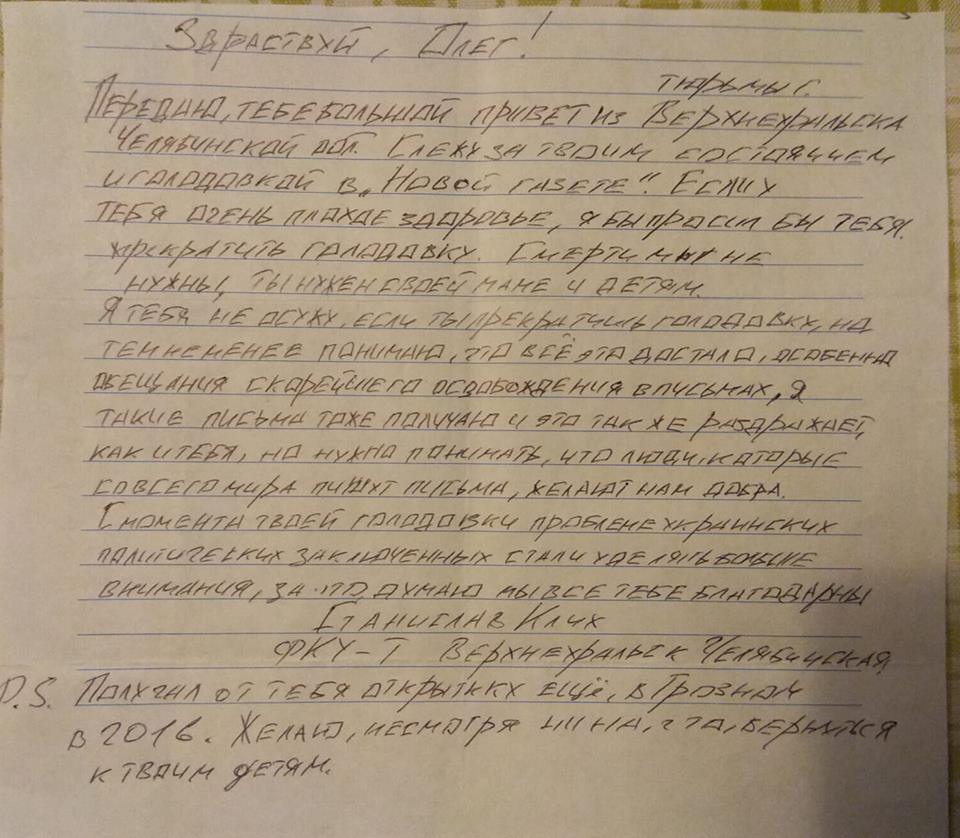 Здраствуй, Олег!
тюрьмы г.
Передаю, тебе большой привет из Верхнеуральска
Челябинской обл. Слежу за твоим состоянием
и голодовкой в „Новой газете“. Если у
тебя очень плохое здоровье, я бы просил бы тебя
прекратить голодовку. Смерти мы не
нужны, ты нужен своей маме и детям.
Я тебя не осужу, если ты прекратишь голодовку, но
тем не менее понимаю, что всё это достало, особенно
обещания скорейшего освобождения в письмах, я
такие письма тоже получаю и это так же раздражает,
как и тебя, но нужно понимать, что люди, которые
со всего мира пишут письма, желают нам добра.
С момента твоей голодовки проблеме украинских
политических заключенных стали уделять больше
внимания, за что думаю мы все тебе благодарны
Станислав Клих
ФКУ-Т Верхнеуральск Челябинская
P.S. Получал от тебя открытку ещё, в Грозном
в 2016. Желаю, несмотря ни на, что, вернуться
к твоим детям.